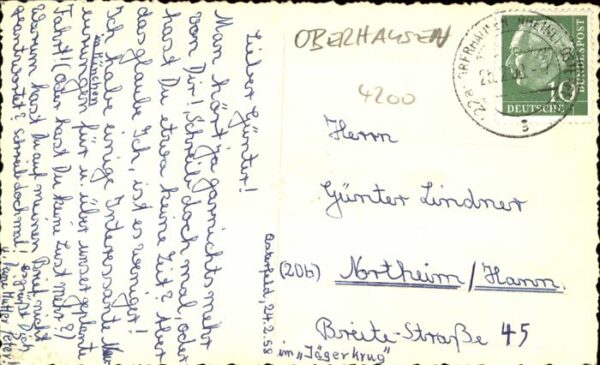 Lieber Günter!
Man hört ja garnichts mehr
von Dir! Schreib doch mal, oder
hast Du etwa keine Zeit? Aber
das glaube Ich, ist es weniger!
Ich habe einige Interessante Neu-
erungen für u. über unser geplante
in München
Fahrt! (oder hast Du keine Lust mehr?)
Warum hast Du auf meinen Brief nicht
geantwortet? Schreib doch mal! Es grüßt Dich
u. Deine Mutter Peter!
Osterfeld, 24.2.58
OBERHAUSEN
4200
Herrn
Günter Lindner
(20b) Northeim/Hann.
Breite-Straße 45
im „Jägerkrug"
22a OBERHAUSEN RHEINL-OST
s
DEUTSCHE
BUNDESPOST
10